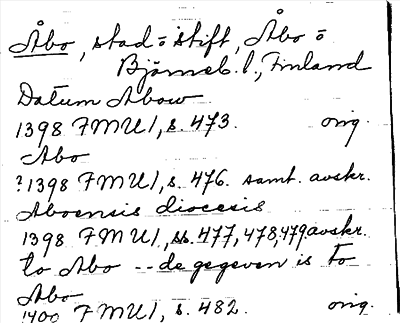 Åbo, stad ō stift, Åbo ō
Björneb. l., Finland
Datum Abow
1398 FMU 1, s. 473. orig.
Abo
?1398 FMU 1, s. 476. samt. avskr.
Aboensis diocesis
1398 FMU 1, ss. 477, 478, 479. avskr.
to Abo -- de gegeven is to
Abo
1400 FMU 1, s. 482. orig.